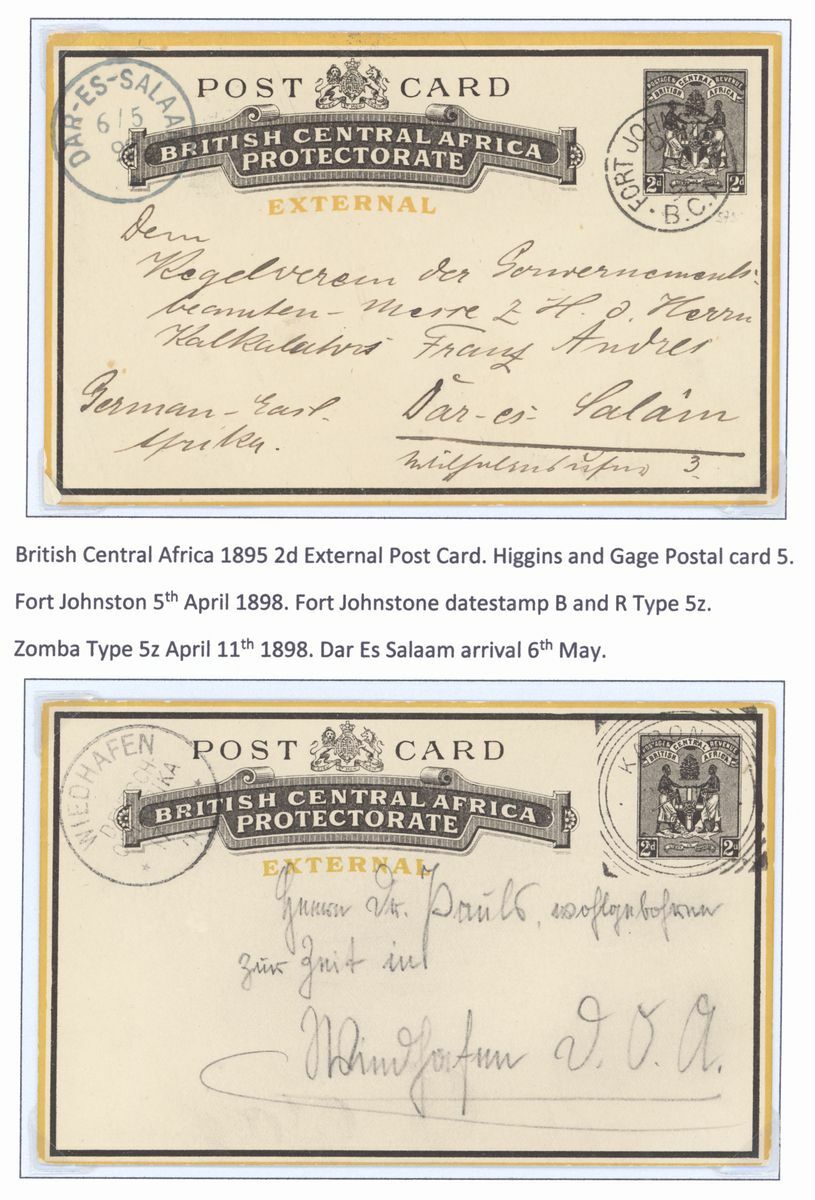 POST CARD
BRITISH CENTRAL AFRICA
PROTECTORATE
EXTERNAL
DAR-ES-SALAA
6/5
POSTAGE & REVENUE
BRITISH CENTRAL AFRICA
2d 2d
FORT JOHN
B.C.A
Dem
Kegelverein der Gouvernements-
beamten-Messe z. H. d. Herrn
Kalkulators Franz Andres
German-East- Dār-es-Salâm
Afrika. 3
British Central Africa 1895 2d External Post Card. Higgins and Gage Postal card 5.
Fort Johnston 5th April 1898. Fort Johnstone datestamp B and R Type 5z.
Zomba Type 5z April 11th 1898. Dar Es Salaam arrival 6th May.
POST CARD
BRITISH CENTRAL AFRICA
PROTECTORATE
EXTERNAL
WIEDHAFEN
POSTAGE & REVENUE
BRITISH CENTRAL AFRICA
2d 2d
Herrn Dr. Pauls, wohlgeboren
zur Zeit in
Wiedhafen D. O. A.